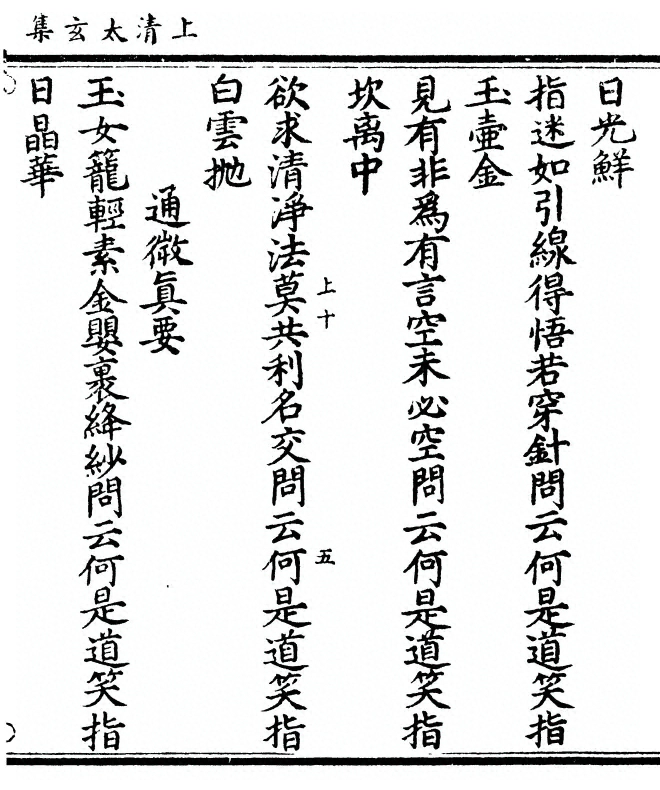 上清太玄集
日光鮮
指迷如引線得悟若穿針問云何是道笑指
玉壺金
見有非爲有言空未必空問云何是道笑指
坎离中
上十
五
欲求清淨法莫共利名交問云何是道笑指
白雲拋
通微眞要
玉女籠輕素金嬰裹絳紗問云何是道笑指
日晶華